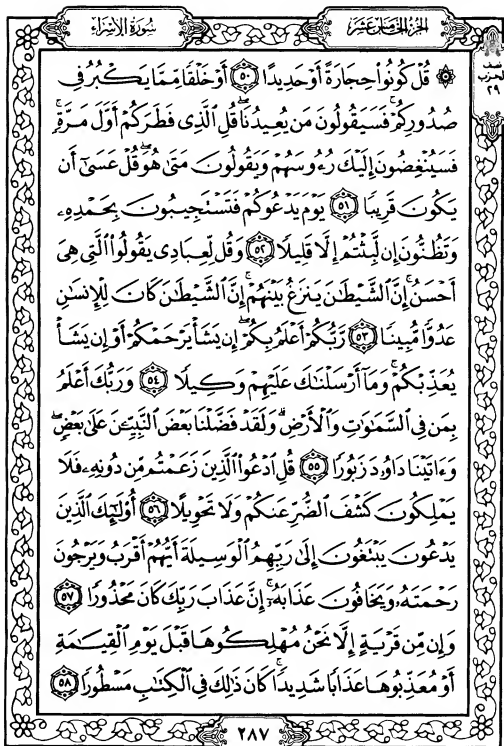 الجزء الخامس عشر
سورة الإسراء
نصف
الحزب
٢٩
۞ قُلْ كُونُوا۟ حِجَارَةً أَوْ حَدِيدًا ۝٥٠ أَوْ خَلْقًا مِّمَّا يَكْبُرُ فِى
صُدُورِكُمْ ۚ فَسَيَقُولُونَ مَن يُعِيدُنَا ۖ قُلِ ٱلَّذِى فَطَرَكُمْ أَوَّلَ مَرَّةٍ ۚ
فَسَيُنْغِضُونَ إِلَيْكَ رُءُوسَهُمْ وَيَقُولُونَ مَتَىٰ هُوَ ۖ قُلْ عَسَىٰٓ أَن
يَكُونَ قَرِيبًا ۝٥١ يَوْمَ يَدْعُوكُمْ فَتَسْتَجِيبُونَ بِحَمْدِهِۦ
وَتَظُنُّونَ إِن لَّبِثْتُمْ إِلَّا قَلِيلًا ۝٥٢ وَقُل لِّعِبَادِى يَقُولُوا۟ ٱلَّتِى هِىَ
أَحْسَنُ ۚ إِنَّ ٱلشَّيْطَٰنَ يَنزَغُ بَيْنَهُمْ ۚ إِنَّ ٱلشَّيْطَٰنَ كَانَ لِلْإِنسَٰنِ
عَدُوًّا مُّبِينًا ۝٥٣ رَّبُّكُمْ أَعْلَمُ بِكُمْ ۖ إِن يَشَأْ يَرْحَمْكُمْ أَوْ إِن يَشَأْ
يُعَذِّبْكُمْ ۚ وَمَآ أَرْسَلْنَٰكَ عَلَيْهِمْ وَكِيلًا ۝٥٤ وَرَبُّكَ أَعْلَمُ
بِمَن فِى ٱلسَّمَٰوَٰتِ وَٱلْأَرْضِ ۗ وَلَقَدْ فَضَّلْنَا بَعْضَ ٱلنَّبِيِّۦنَ عَلَىٰ بَعْضٍ ۖ
وَءَاتَيْنَا دَاوُۥدَ زَبُورًا ۝٥٥ قُلِ ٱدْعُوا۟ ٱلَّذِينَ زَعَمْتُم مِّن دُونِهِۦ فَلَا
يَمْلِكُونَ كَشْفَ ٱلضُّرِّ عَنكُمْ وَلَا تَحْوِيلًا ۝٥٦ أُو۟لَٰٓئِكَ ٱلَّذِينَ
يَدْعُونَ يَبْتَغُونَ إِلَىٰ رَبِّهِمُ ٱلْوَسِيلَةَ أَيُّهُمْ أَقْرَبُ وَيَرْجُونَ
رَحْمَتَهُۥ وَيَخَافُونَ عَذَابَهُۥٓ ۚ إِنَّ عَذَابَ رَبِّكَ كَانَ مَحْذُورًا ۝٥٧
وَإِن مِّن قَرْيَةٍ إِلَّا نَحْنُ مُهْلِكُوهَا قَبْلَ يَوْمِ ٱلْقِيَٰمَةِ
أَوْ مُعَذِّبُوهَا عَذَابًا شَدِيدًا ۚ كَانَ ذَٰلِكَ فِى ٱلْكِتَٰبِ مَسْطُورًا ۝٥٨
٢٨٧